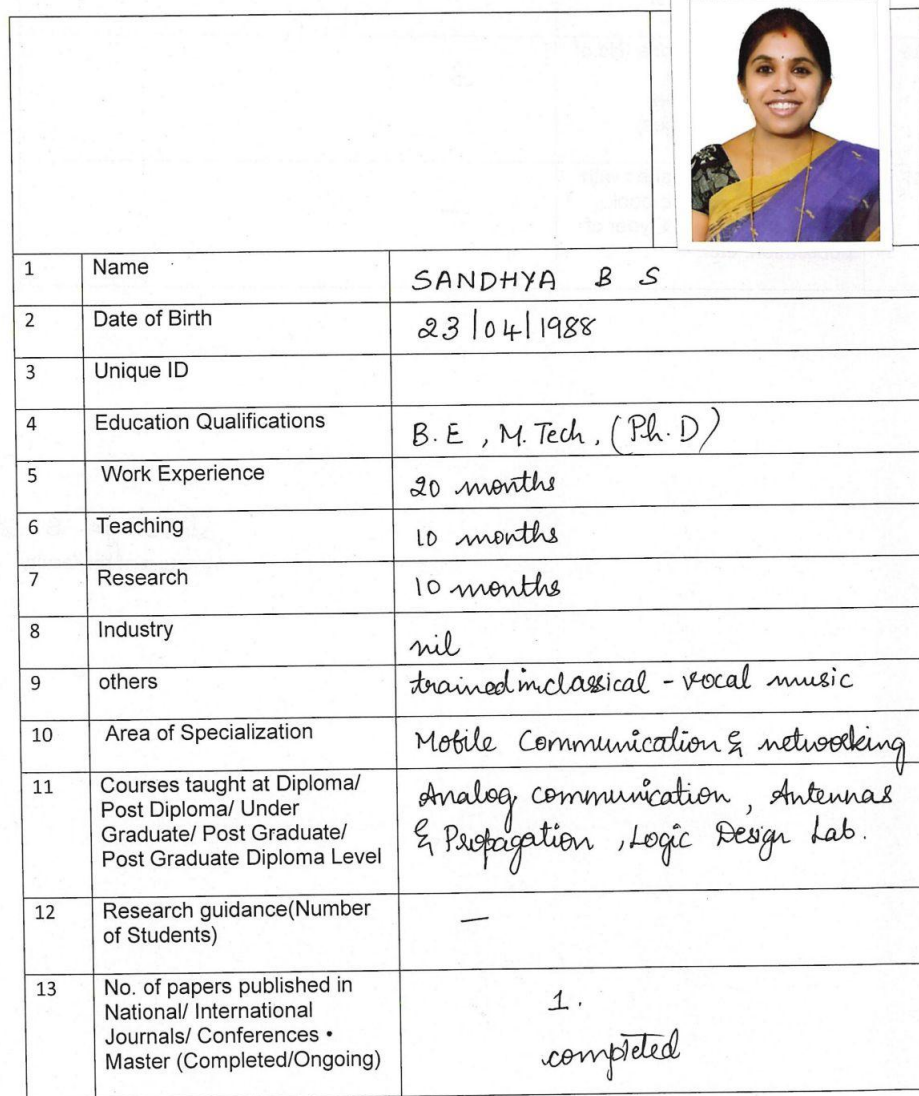 1 Name SANDHYA B S
2 Date of Birth 23/04/1988
3 Unique ID
4 Education Qualifications B.E, M.Tech, (Ph.D)
5 Work Experience 20 months
6 Teaching 10 months
7 Research 10 months
8 Industry nil
9 others trained in classical - vocal music
10 Area of Specialization Mobile Communication & networking
11 Courses taught at Diploma/
Post Diploma/ Under
Graduate/ Post Graduate/
Post Graduate Diploma Level
Analog communication, Antennas
& Propagation, Logic Design Lab.
12 Research guidance(Number
of Students)
—
13 No. of papers published in
National/ International
Journals/ Conferences •
Master (Completed/Ongoing)
1.
completed